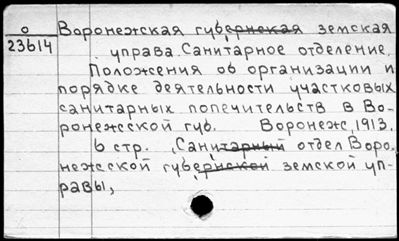 о
23614
Воронежская губернская земская
управа. Санитарное отделение.
Положения об организации и
порядке деятельности участковых
санитарных попечительств в Во-
ронежсской губ. Воронеж, 1913.
6 стр. , Санитарный отдел Воро-
нежсской губернской земской уп-
равы,